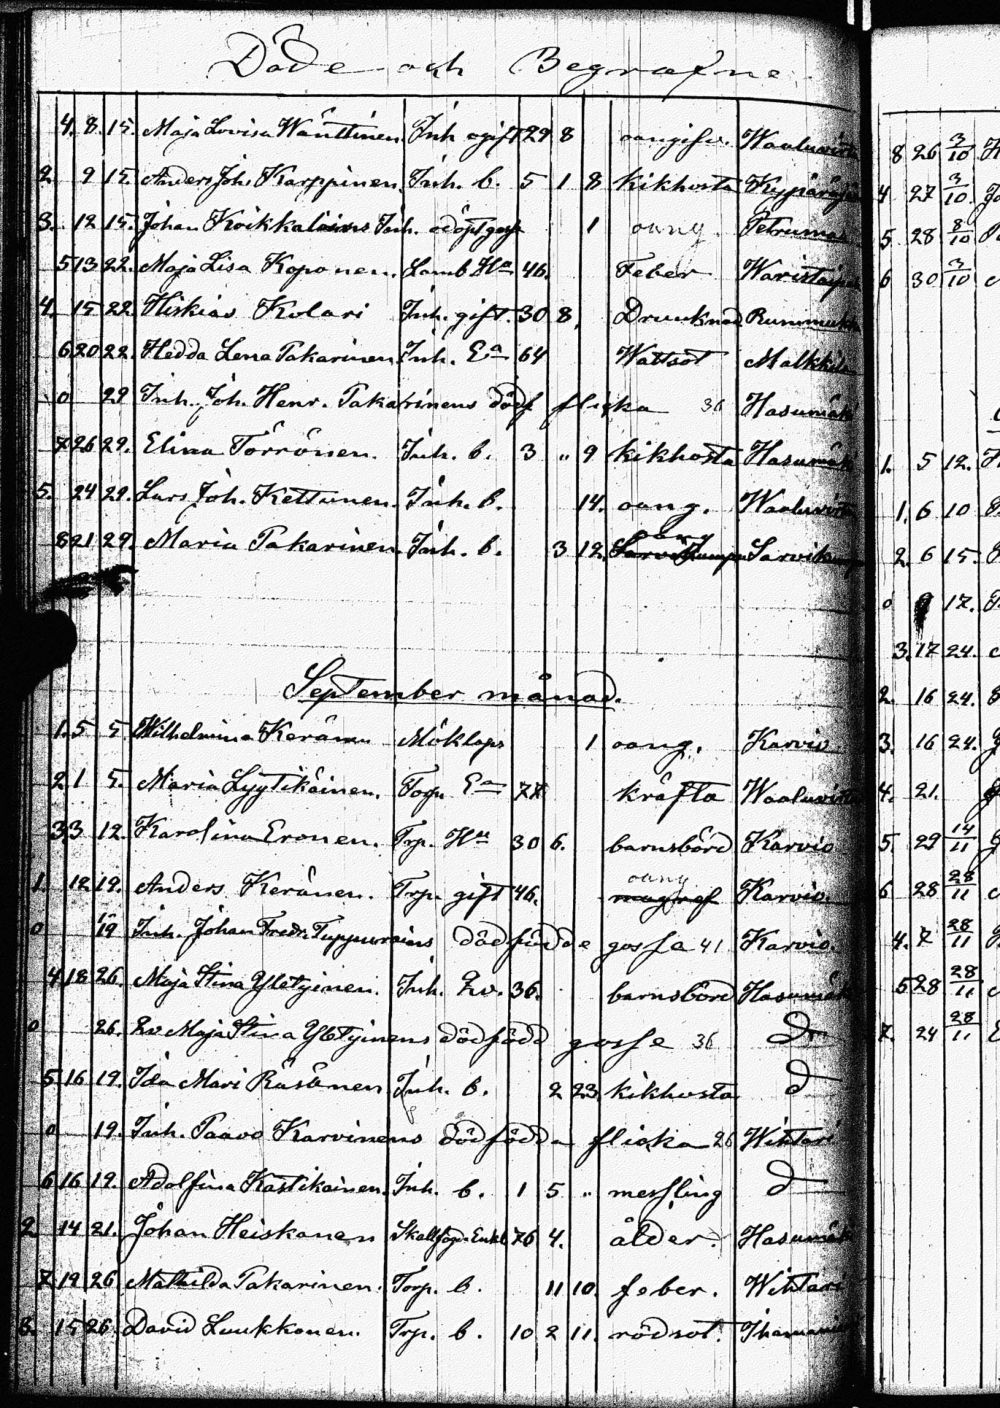 Döde och Begrafne
4. 8. 15. Maja Lovisa Wänttinen Inh ogift 29 8 oangifw.
2 9 15. Anders Joh. Karppinen Inh. b. 5 1 8 kikhosta
3. 12 15. Johan Inh. 1 oang. Petrumas
5 13 22. Maja Lisa Koponen. Lamb. Hu 46. Feber
4. 15 22 Hiskias Kolari Inh. gift. 30 8. Drunknad
6 20 22. Hedda Lena Pakarinen Inh. Ea 64 Wattsot
0 29 Inh. Joh. Henr. Pakarinens dödf flicka 36 Hasumäki
7 26 29. Elina Törrönen. Inh. b. 3 " 9 kikhosta Hasumäki
5. 24 29. Lars Joh. Kettunen. Inh. b. 14. oang.
8 21 29. Maria Pakarinen. Inh. b. 3 12. oang Sarvikumpu
September månad.
1. 5 5. Wilhelmina Keränen 1 oang. Karvio
2 1 5. Maria Lyytikäinen. Torp. Ea 77 kräfta
3 3 12. Karolina Eronen. Trp. Hu 30 6. barnsbörd Karvio
1. 12 19. Anders Keränen. Trp. gift 46. oang Karvio.
0 19 Inh. Johan Fredr. Tuppurains dödfödde gosse 41 Karvio.
4 18 26. Maja Stina Yletyinen. Inh. Qv. 36. barnsbörd Hasumäki
0 26. Qv Maja Stina Yletyinens dödfödd gosse 36 Do
5 16 19. Ida Mari Räsänen Inh. b. 2 23 kikhosta d
0 19. Inh. Paavo Karvinens dödfödda flicka 26 Wihtari
6 16 19. Adolfina Kastikainen. Inh. b. 1 5 " messling d
2 14 21. Johan Heiskanen Enkl. 76 4. ålder. Hasumäki
7 19 26 Mathilda Pakarinen. Torp. b. 11 10 feber. Wihtari
8. 15 26. David Luukkonen. Trp. b. 10 2 11. rödsot.
8 26 3/10
4 27 3/10
5 28 8/10
6 30 3/10
1. 5 12.
1. 6 10
2. 6 15.
0 9 17.
3. 17 24.
2. 16 24.
3. 16 24.
4. 21.
5. 29 14/11
6 28 28/11
4. 7 28/11
5 28 28/11
7. 24 28/11